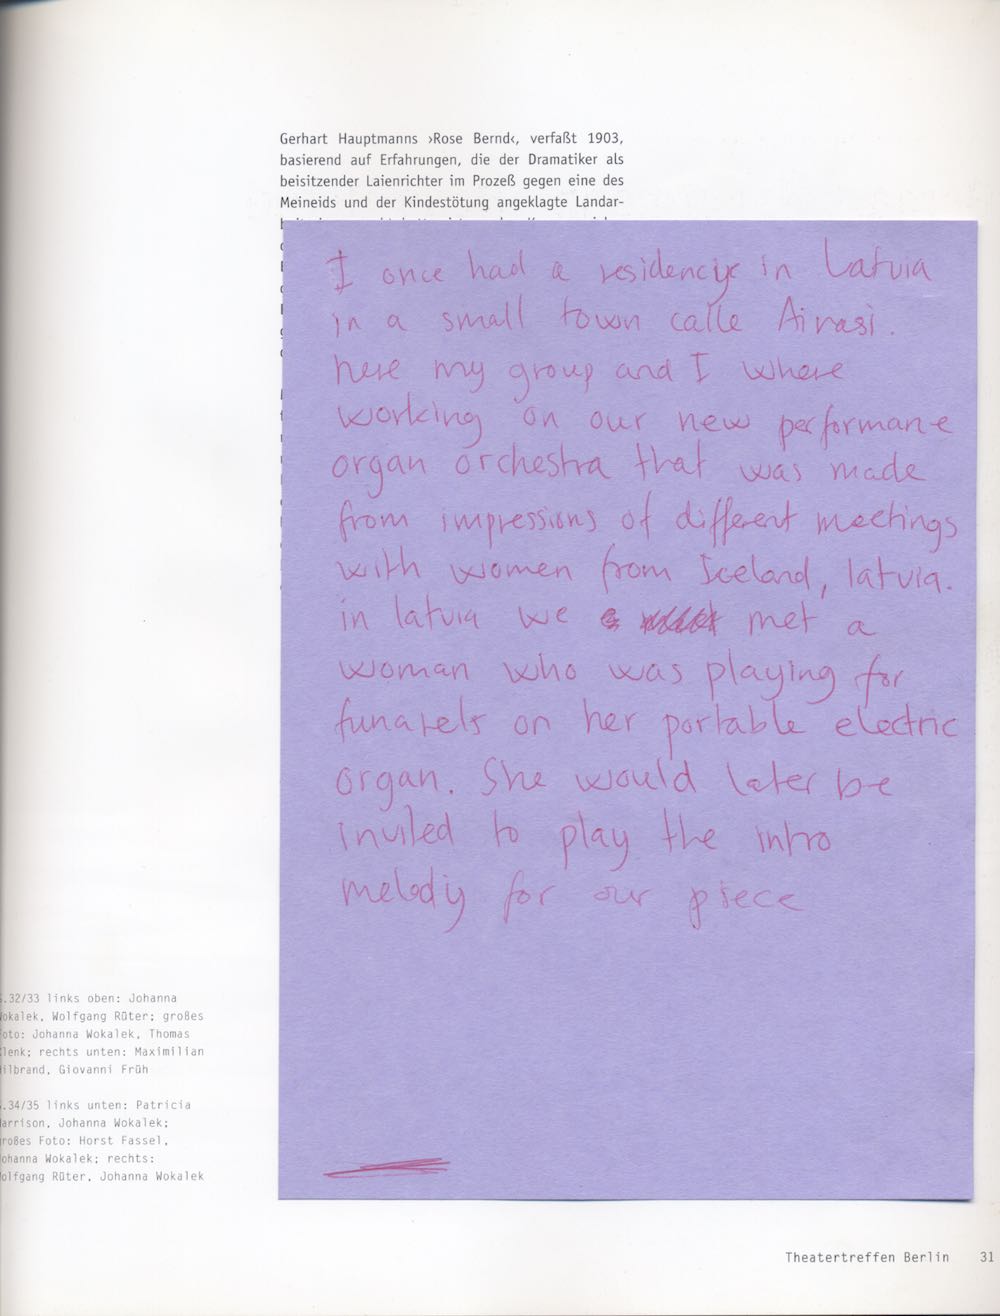 Gerhart Hauptmanns ›Rose Bernd‹, verfaßt 1903,
basierend auf Erfahrungen, die der Dramatiker als
beisitzender Laienrichter im Prozeß gegen eine des
Meineids und der Kindestötung angeklagte Landar-
I once had a residency in Latvia
in a small town calle Airasi.
here my group and I where
working on our new performane
organ orchestra that was made
from impressions of different meetings
with women from Iceland, latvia.
in latvia we met a
woman who was playing for
funarels on her portable electric
organ. She would later be
invited to play the intro
melody for our piece
.32/33 links oben: Johanna
okalek, Wolfgang Rüter; großes
oto: Johanna Wokalek, Thomas
lenk; rechts unten: Maximilian
ilbrand, Giovanni Früh
.34/35 links unten: Patricia
arrison, Johanna Wokalek;
roßes Foto: Horst Fassel,
ohanna Wokalek; rechts:
olfgang Rüter, Johanna Wokalek
Theatertreffen Berlin 31